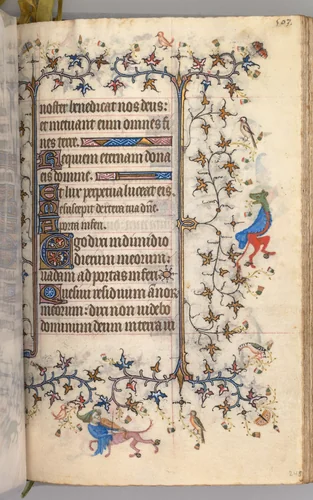 noster benedicat nos deus:
et metuant eum omnes fi
nes terre.
Requiem eternam dona
eis domine.
Et lux perpetua luceat eis.
Me suscepit dextera tua dñe.
A porta inferi.
Ego dixi in dimidio
dierum meorum:
vadam ad portas inferi.
Quesivi residuum annor
meorum: dixi non videbo
dominum deum in terra vi